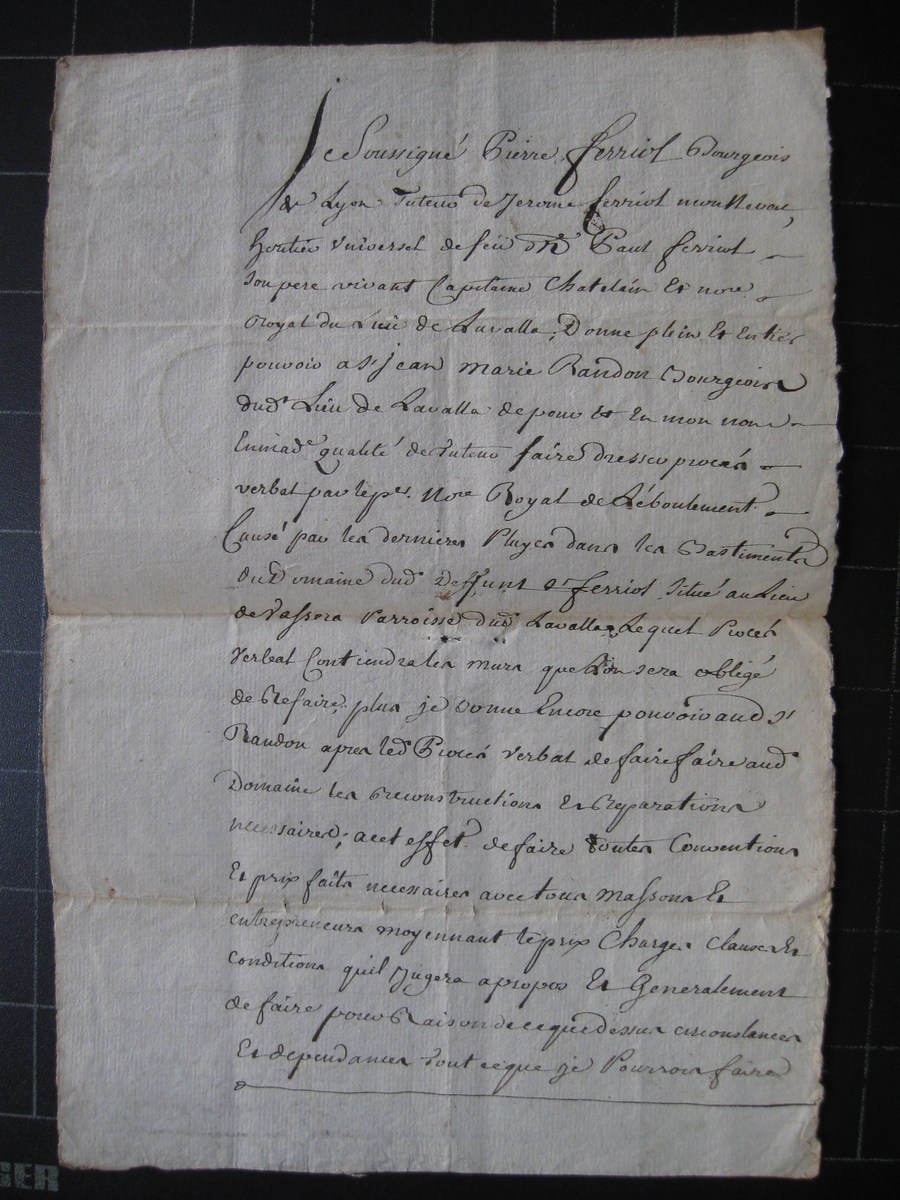 Je Soussigné Pierre ferriol Bourgeois
de Lyon Tuteur de Jerome ferriol mon Neveu,
heritier Universel de feü Paul ferriol
Son pere vivant Capitaine Chatelain Et nore
Royal du Lieu de Lavalla, Donne plein Et Entier
pouvoir a Sr jean Marie Randon Bourgeois
dud. Lieu de Lavalla de pour Et En mon nom
En mad. qualité de Tuteur faire dresser procés
verbal par le pr. Nore Royal de L'éboulement
Causé par les dernieres Pluyes dans les Bastiments
du Domaine dud. Deffunt Sr ferriol Situé au Lieu
de Vassera Parroisse dud. Lavalla, Lequel Procés
Verbal Contiendra les murs que L'on sera obligé
de Refaire, plus je donne Encore pouvoir aud. Sr
Randon apres led. Procés Verbal de faire faire aud.
Domaine les Reconstructions Et Reparations
necessaires, a cet effet de faire toutes Conventions
Et prix faits necessaires avec tous Massons Et
entrepreneurs moyennant le prix Charges Clauses Et
conditions qu'il Jugera apropos Et Generalement
de faire pour Raison de ce que dessus circonstances
Et dependances Tout ce que je Pourrois faire